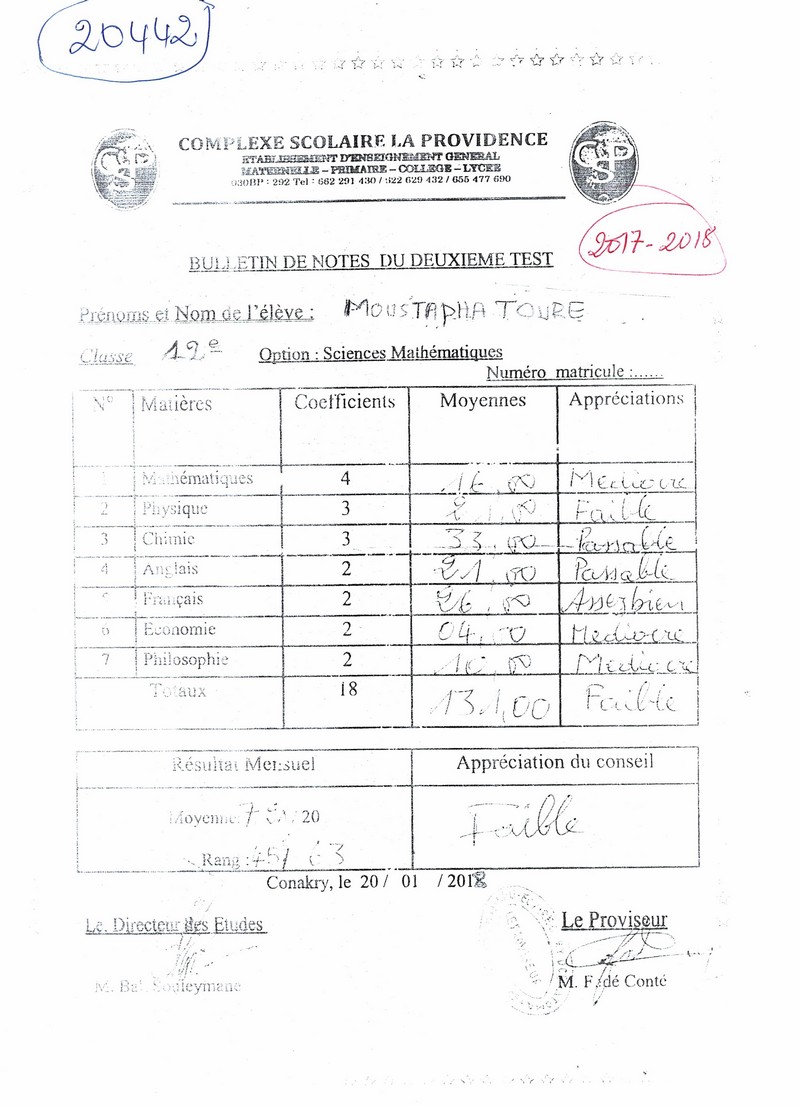 20442
COMPLEXE SCOLAIRE LA PROVIDENCE
ETABLISSEMENT D'ENSEIGNEMENT GENERAL
MATERNELLE – PRIMAIRE – COLLEGE – LYCEE
030BP : 292 Tel : 662 291 430 / 622 629 432 / 655 477 690
2017-2018
BULLETIN DE NOTES DU DEUXIEME TEST
Prénoms et Nom de l'élève : MOUSTAPHA TOURE
Classe 12e Option : Sciences Mathématiques
Numéro matricule :......
N° Matières Coefficients Moyennes Appréciations
1 Mathématiques 4 16,00 Mediocre
2 Physique 3 21,00 Faible
3 Chimie 3 33,00 Passable
4 Anglais 2 21,00 Passable
Français 2 26,00 Assezbien
6 Economie 2 04,00 Mediocre
7 Philosophie 2 10,00 Mediocre
Totaux 18 131,00 Faible
Résultat Mensuel Appréciation du conseil
Moyenne: 20 Faible
Rang : 63
Conakry, le 20 / 01 / 2018
Le Directeur des Etudes Le Proviseur
M. Souleymane M. F. dé Conté